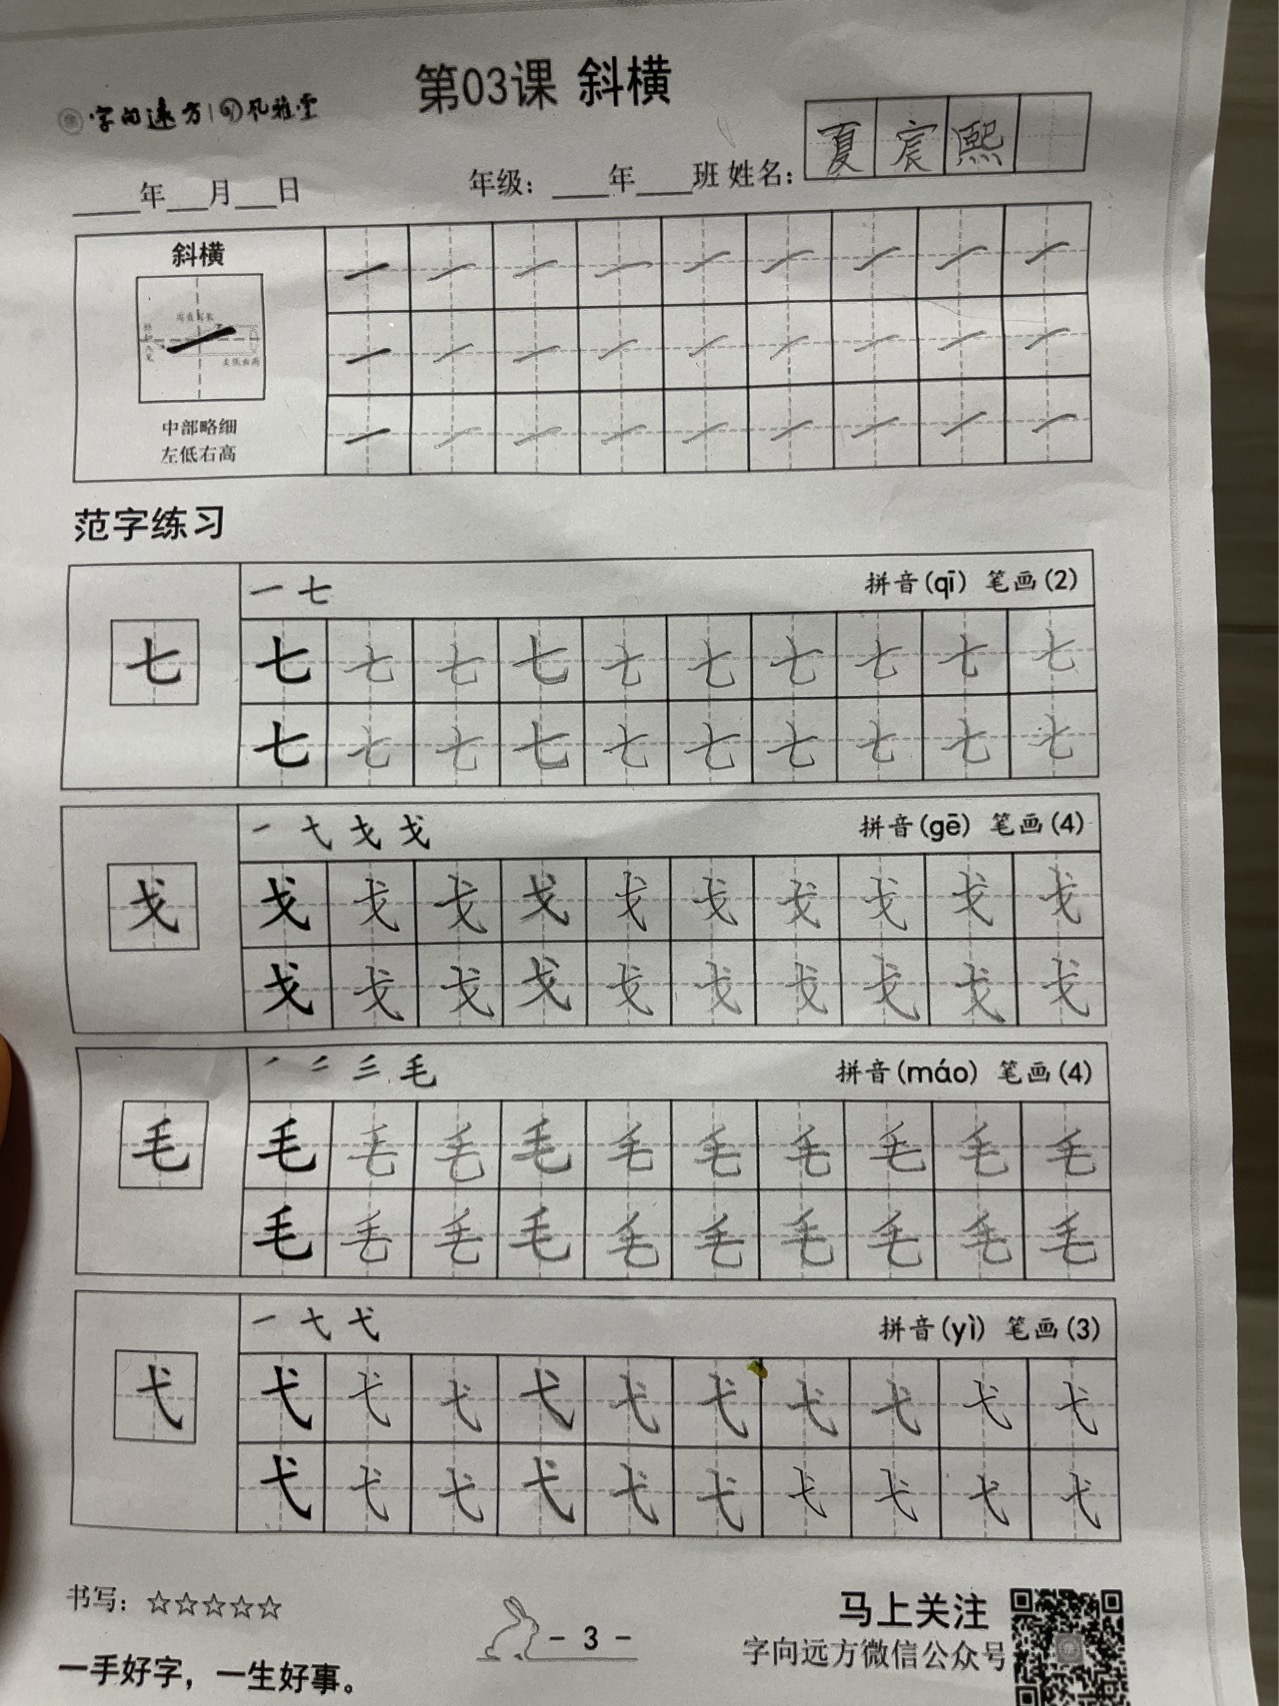 第03课 斜横
字向远方 孔雅堂
夏宸熙
____年___月___日 年级：____年____班 姓名：
斜横
一 一 一 一 一 一 一 一 一
一 一 一 一 一 一 一 一 一
中部略细
左低右高
一 一 一 一 一 一 一 一 一
范字练习
一 七 拼音(qī) 笔画(2)
七 七 七 七 七 七 七 七 七 七 七
七 七 七 七 七 七 七 七 七 七
一 弋 戈 戈 拼音(gē) 笔画(4)
戈 戈 戈 戈 戈 戈 戈 戈 戈 戈 戈
戈 戈 戈 戈 戈 戈 戈 戈 戈 戈
毛 拼音(máo) 笔画(4)
毛 毛 毛 毛 毛 毛 毛 毛 毛 毛 毛
毛 毛 毛 毛 毛 毛 毛 毛 毛 毛
一 弋 拼音(yì) 笔画(3)
弋 弋 弋 弋 弋 弋 弋 弋 弋 弋 弋
弋 弋 弋 弋 弋 弋 弋 弋 弋 弋
书写：☆☆☆☆☆
- 3 -
马上关注
字向远方微信公众号
一手好字，一生好事。